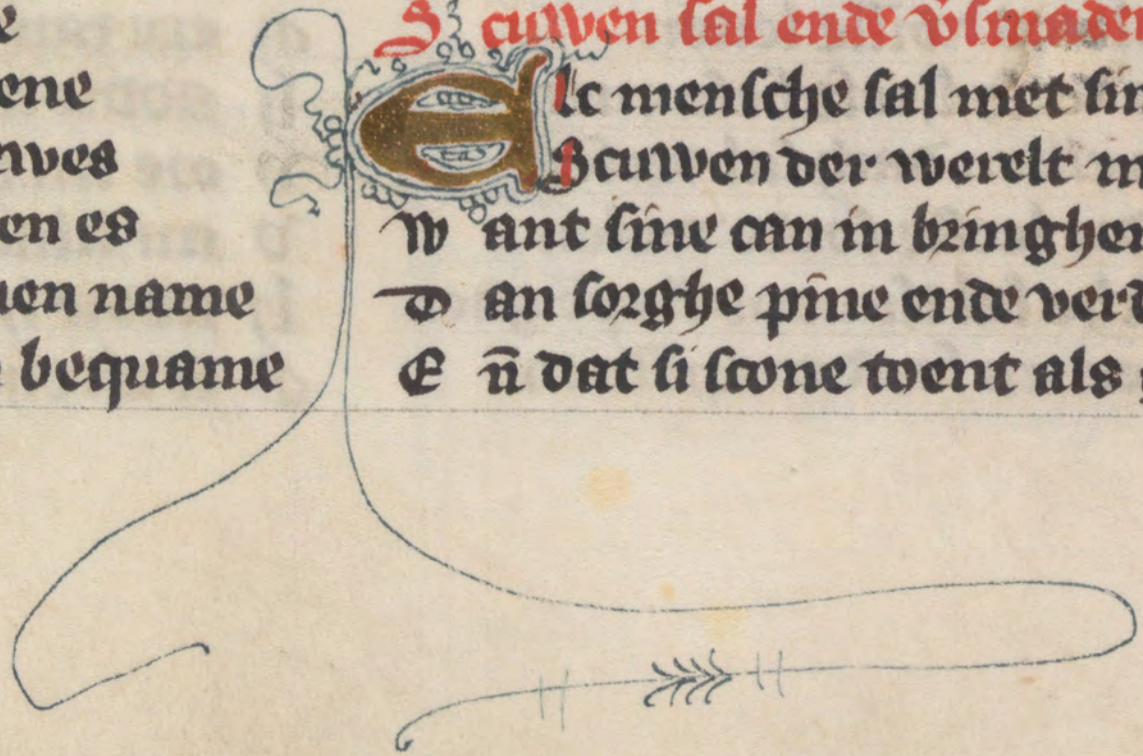 ene
wes
en es
uen name
bequame
Scuwen sal ende v̄smaden
Elc mensche sal met sin
Scuwen der werelt m
want sine can in bringhen
Dan sorghe pine ende verd
En̄ dat si scone toent als